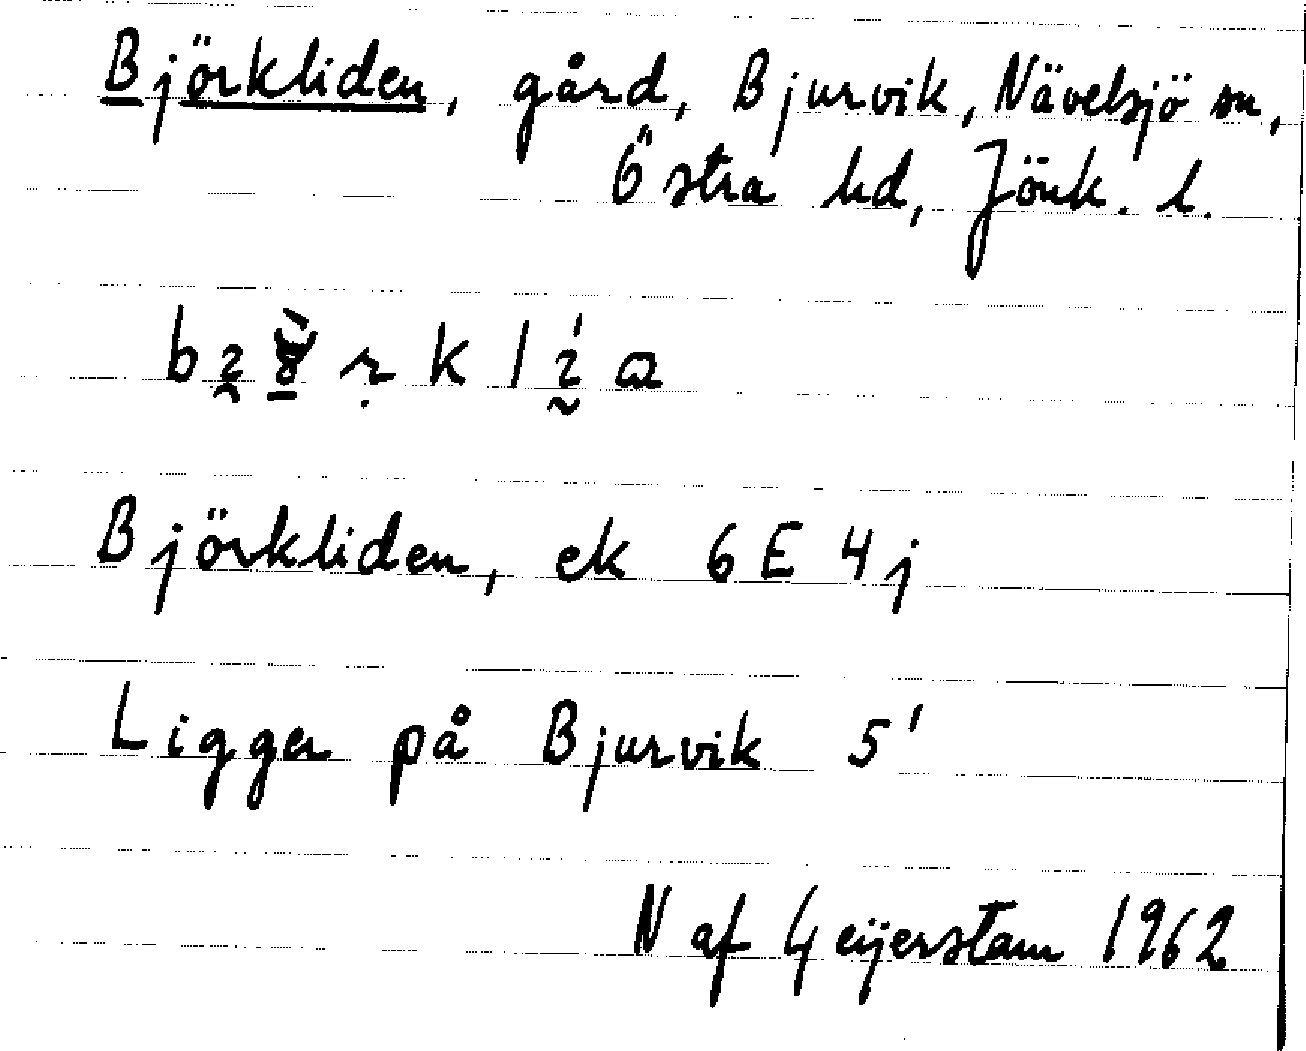 Björkliden, gård, Bjurvik, Nävelsjö sn,
Östra hd, Jönk. l.
Björkliden, ek 6 E 4 j
Ligger på Bjurvik 5'
N af Geijerstam 1962